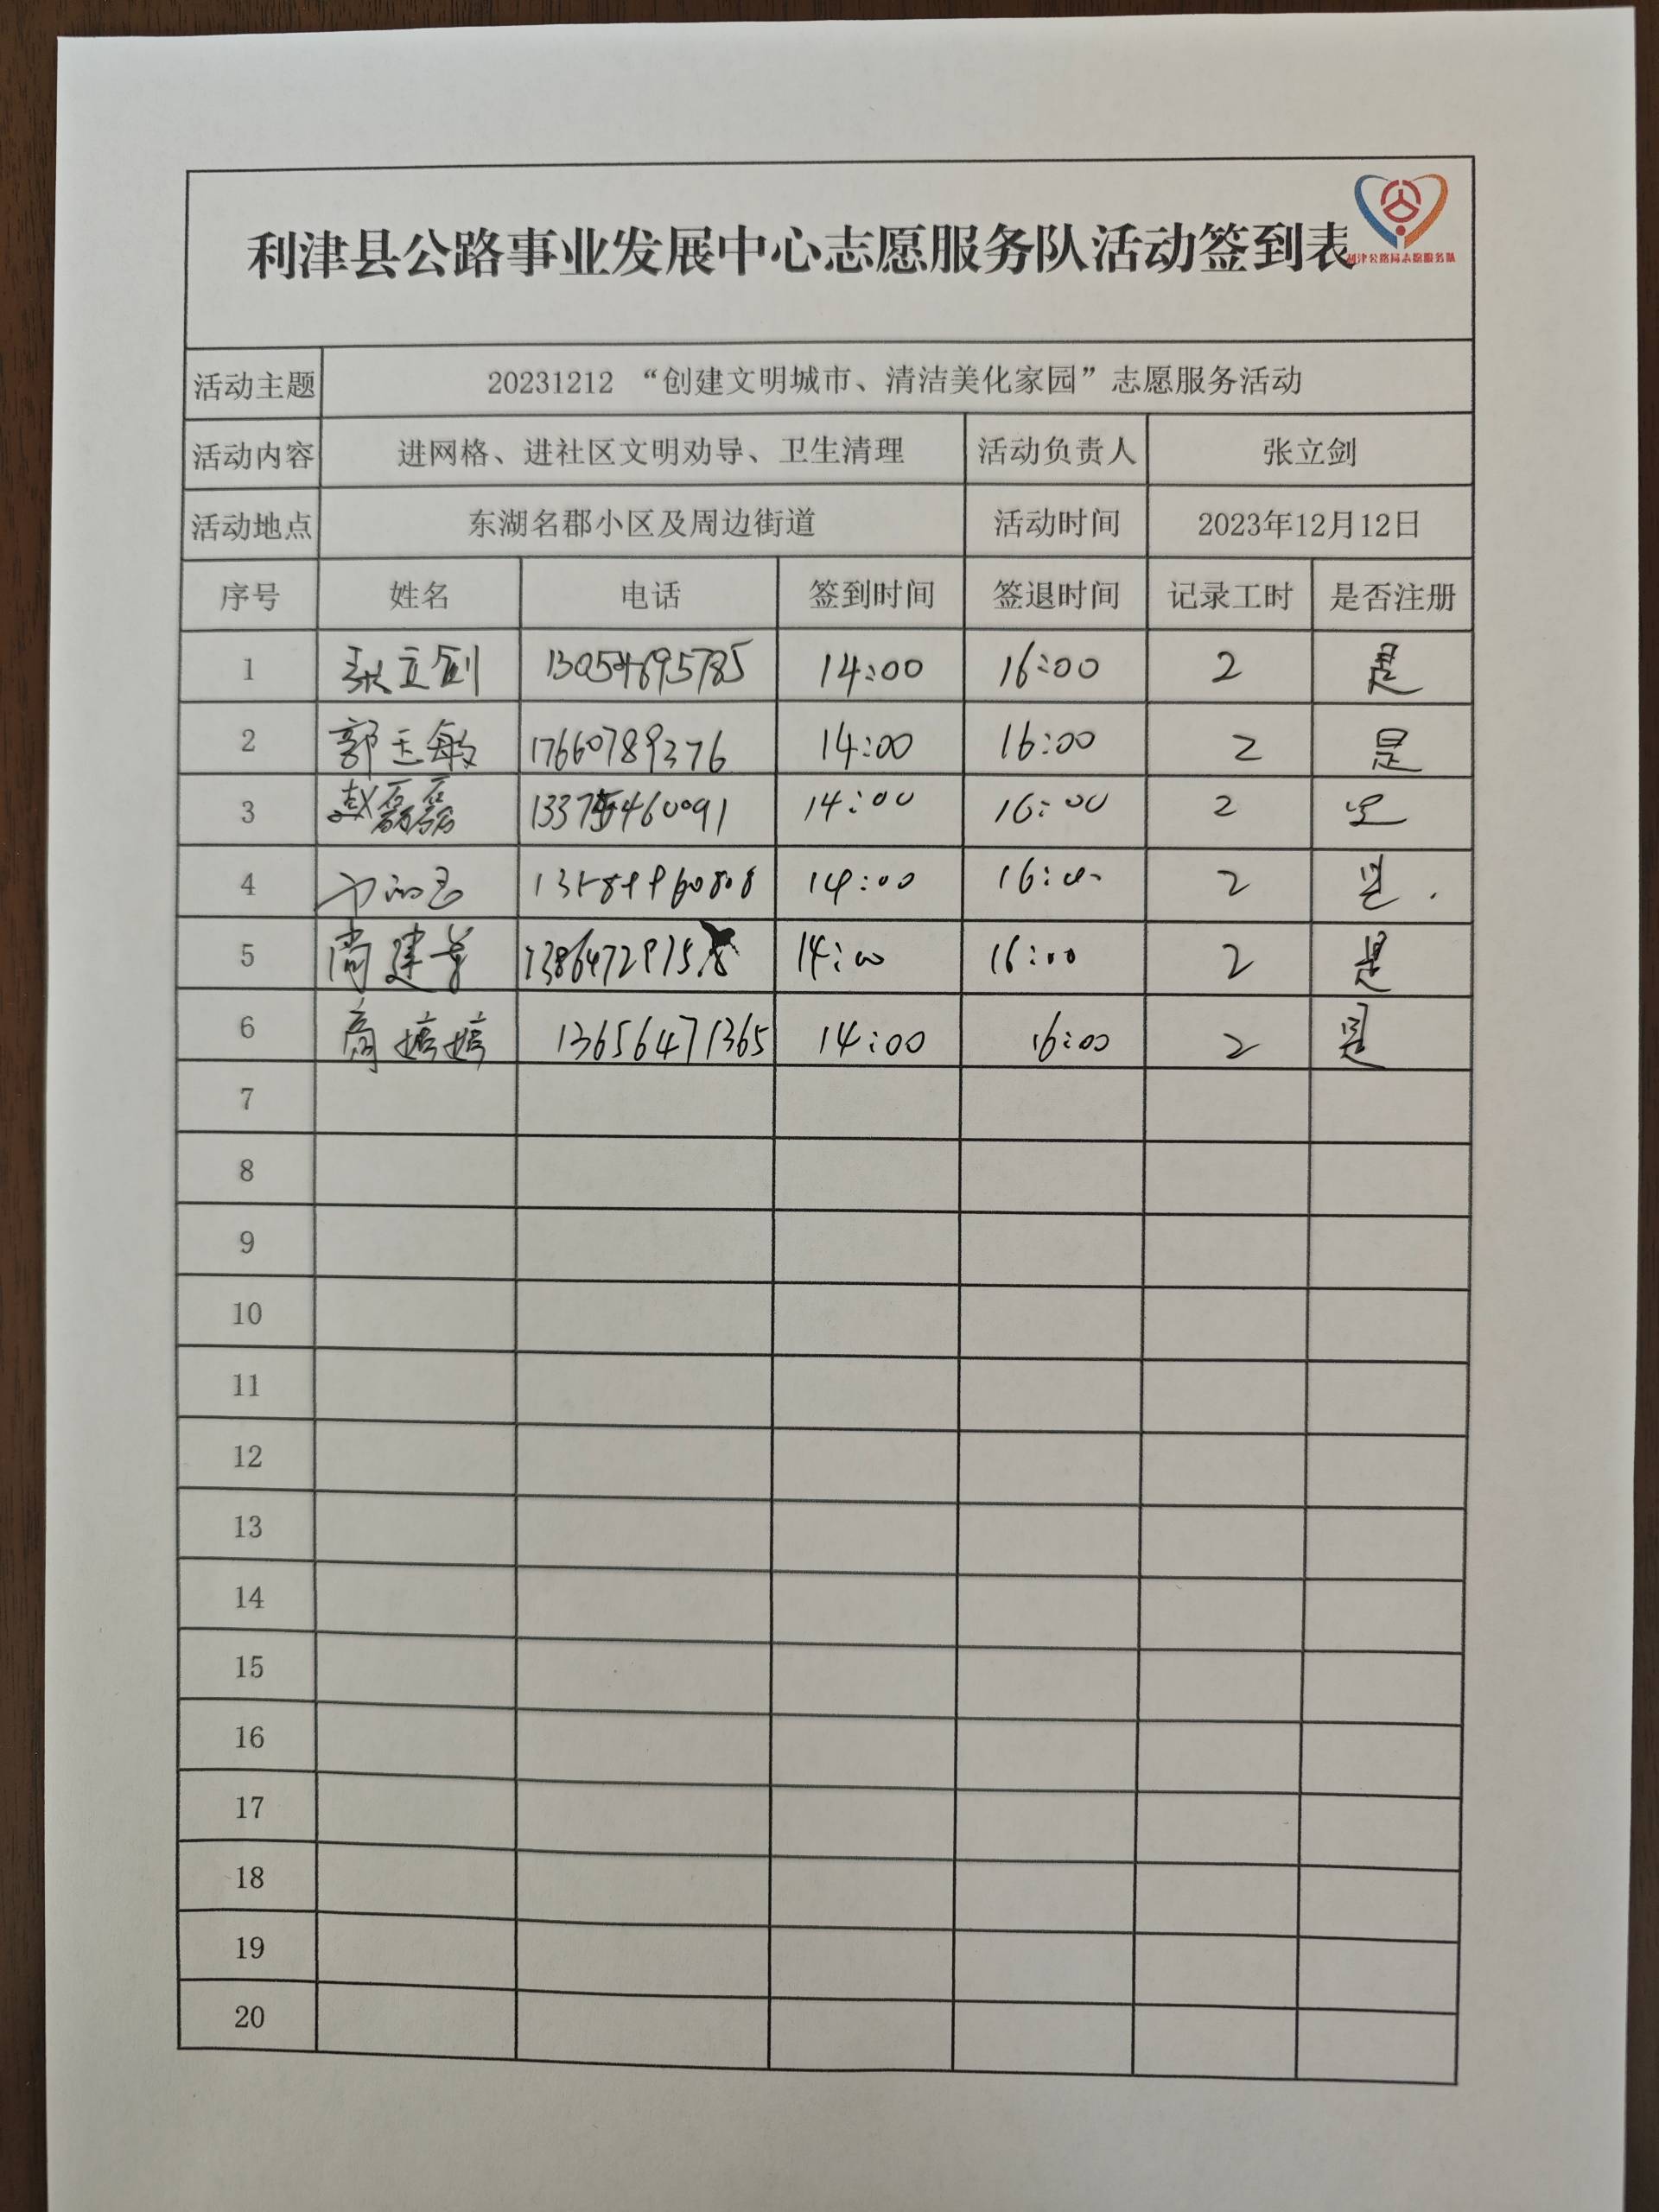 利津县公路事业发展中心志愿服务队活动签到表
利津公路局志愿服务队
活动主题 20231212 “创建文明城市、清洁美化家园”志愿服务活动
活动内容 进网格、进社区文明劝导、卫生清理 活动负责人 张立剑
活动地点 东湖名郡小区及周边街道 活动时间 2023年12月12日
序号 姓名 电话 签到时间 签退时间 记录工时 是否注册
1 张立剑 13054695785 14:00 16:00 2 是
2 郭玉敏 17660789376 14:00 16:00 2 是
3 赵磊磊 14:00 16:00 2 是
4 14:00 16:00 2 是
5 尚建 14:00 16:00 2 是
6 商婷婷 13656471365 14:00 16:00 2 是
7
8
9
10
11
12
13
14
15
16
17
18
19
20